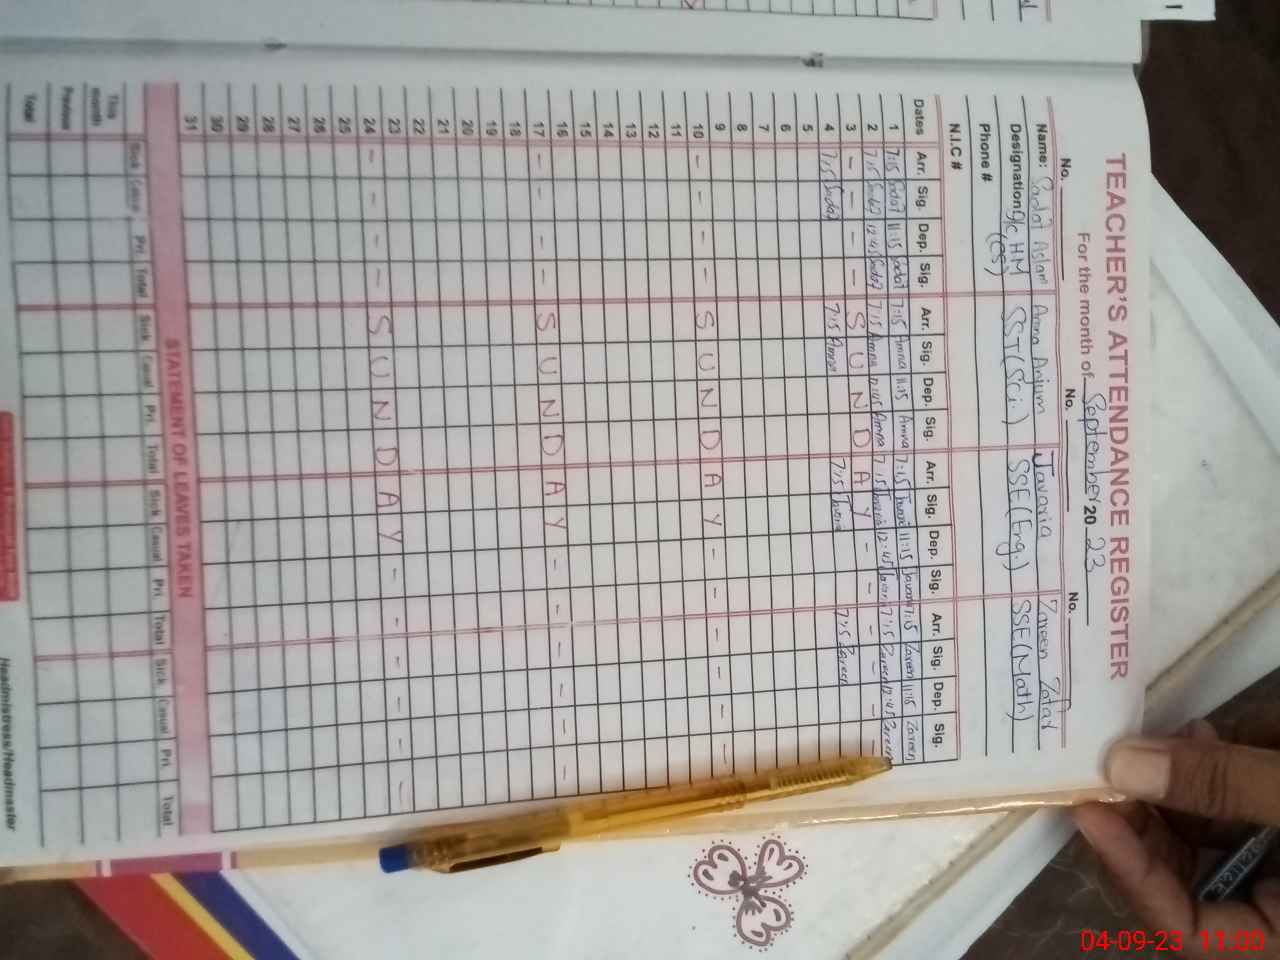 TEACHER'S ATTENDANCE REGISTER
For the month of September 2023
No. No. No.
Name: Sadat Aslam Amna Anjum Javaria Zareen Zafar
Designation O/c HM (CS) SST(Sci.) SSE(Eng.) SSE(Math)
Phone #
N.I.C #
Dates Arr. Sig. Dep. Sig. Arr. Sig. Dep. Sig. Arr. Sig. Dep. Sig. Arr. Sig. Dep. Sig.
1 7:15 Sadat 11:15 Sadat 7:15 Amna 11:15 Amna 7:15 Javaria 11:15 Javaria 7:15 Zareen 11:15 Zareen
2 7:15 Sadat 12:45 Sadat 7:15 Amna 12:45 Amna 7:15 Javaria 12:45 Javaria 7:15 Zareen 12:45 Zareen
3 - - - - S U N D A Y - - - - -
4 7:15 Sadat 7:15 Amna 7:15 Javaria 7:15 Zareen
5
6
7
8
9
10 - - - - S U N D A Y - - - - - -
11
12
13
14
15
16
17 - - - - S U N D A Y - - - - - -
18
19
20
21
22
23
24 - - - - S U N D A Y - - - - - -
25
26
27
28
29
30
31
STATEMENT OF LEAVES TAKEN
Sick Casual Pri. Total Sick Casual Pri. Total Sick Casual Pri. Total Sick Casual Pri. Total
This month
Previous
Total
Headmistress/Headmaster
04-09-23 11:00